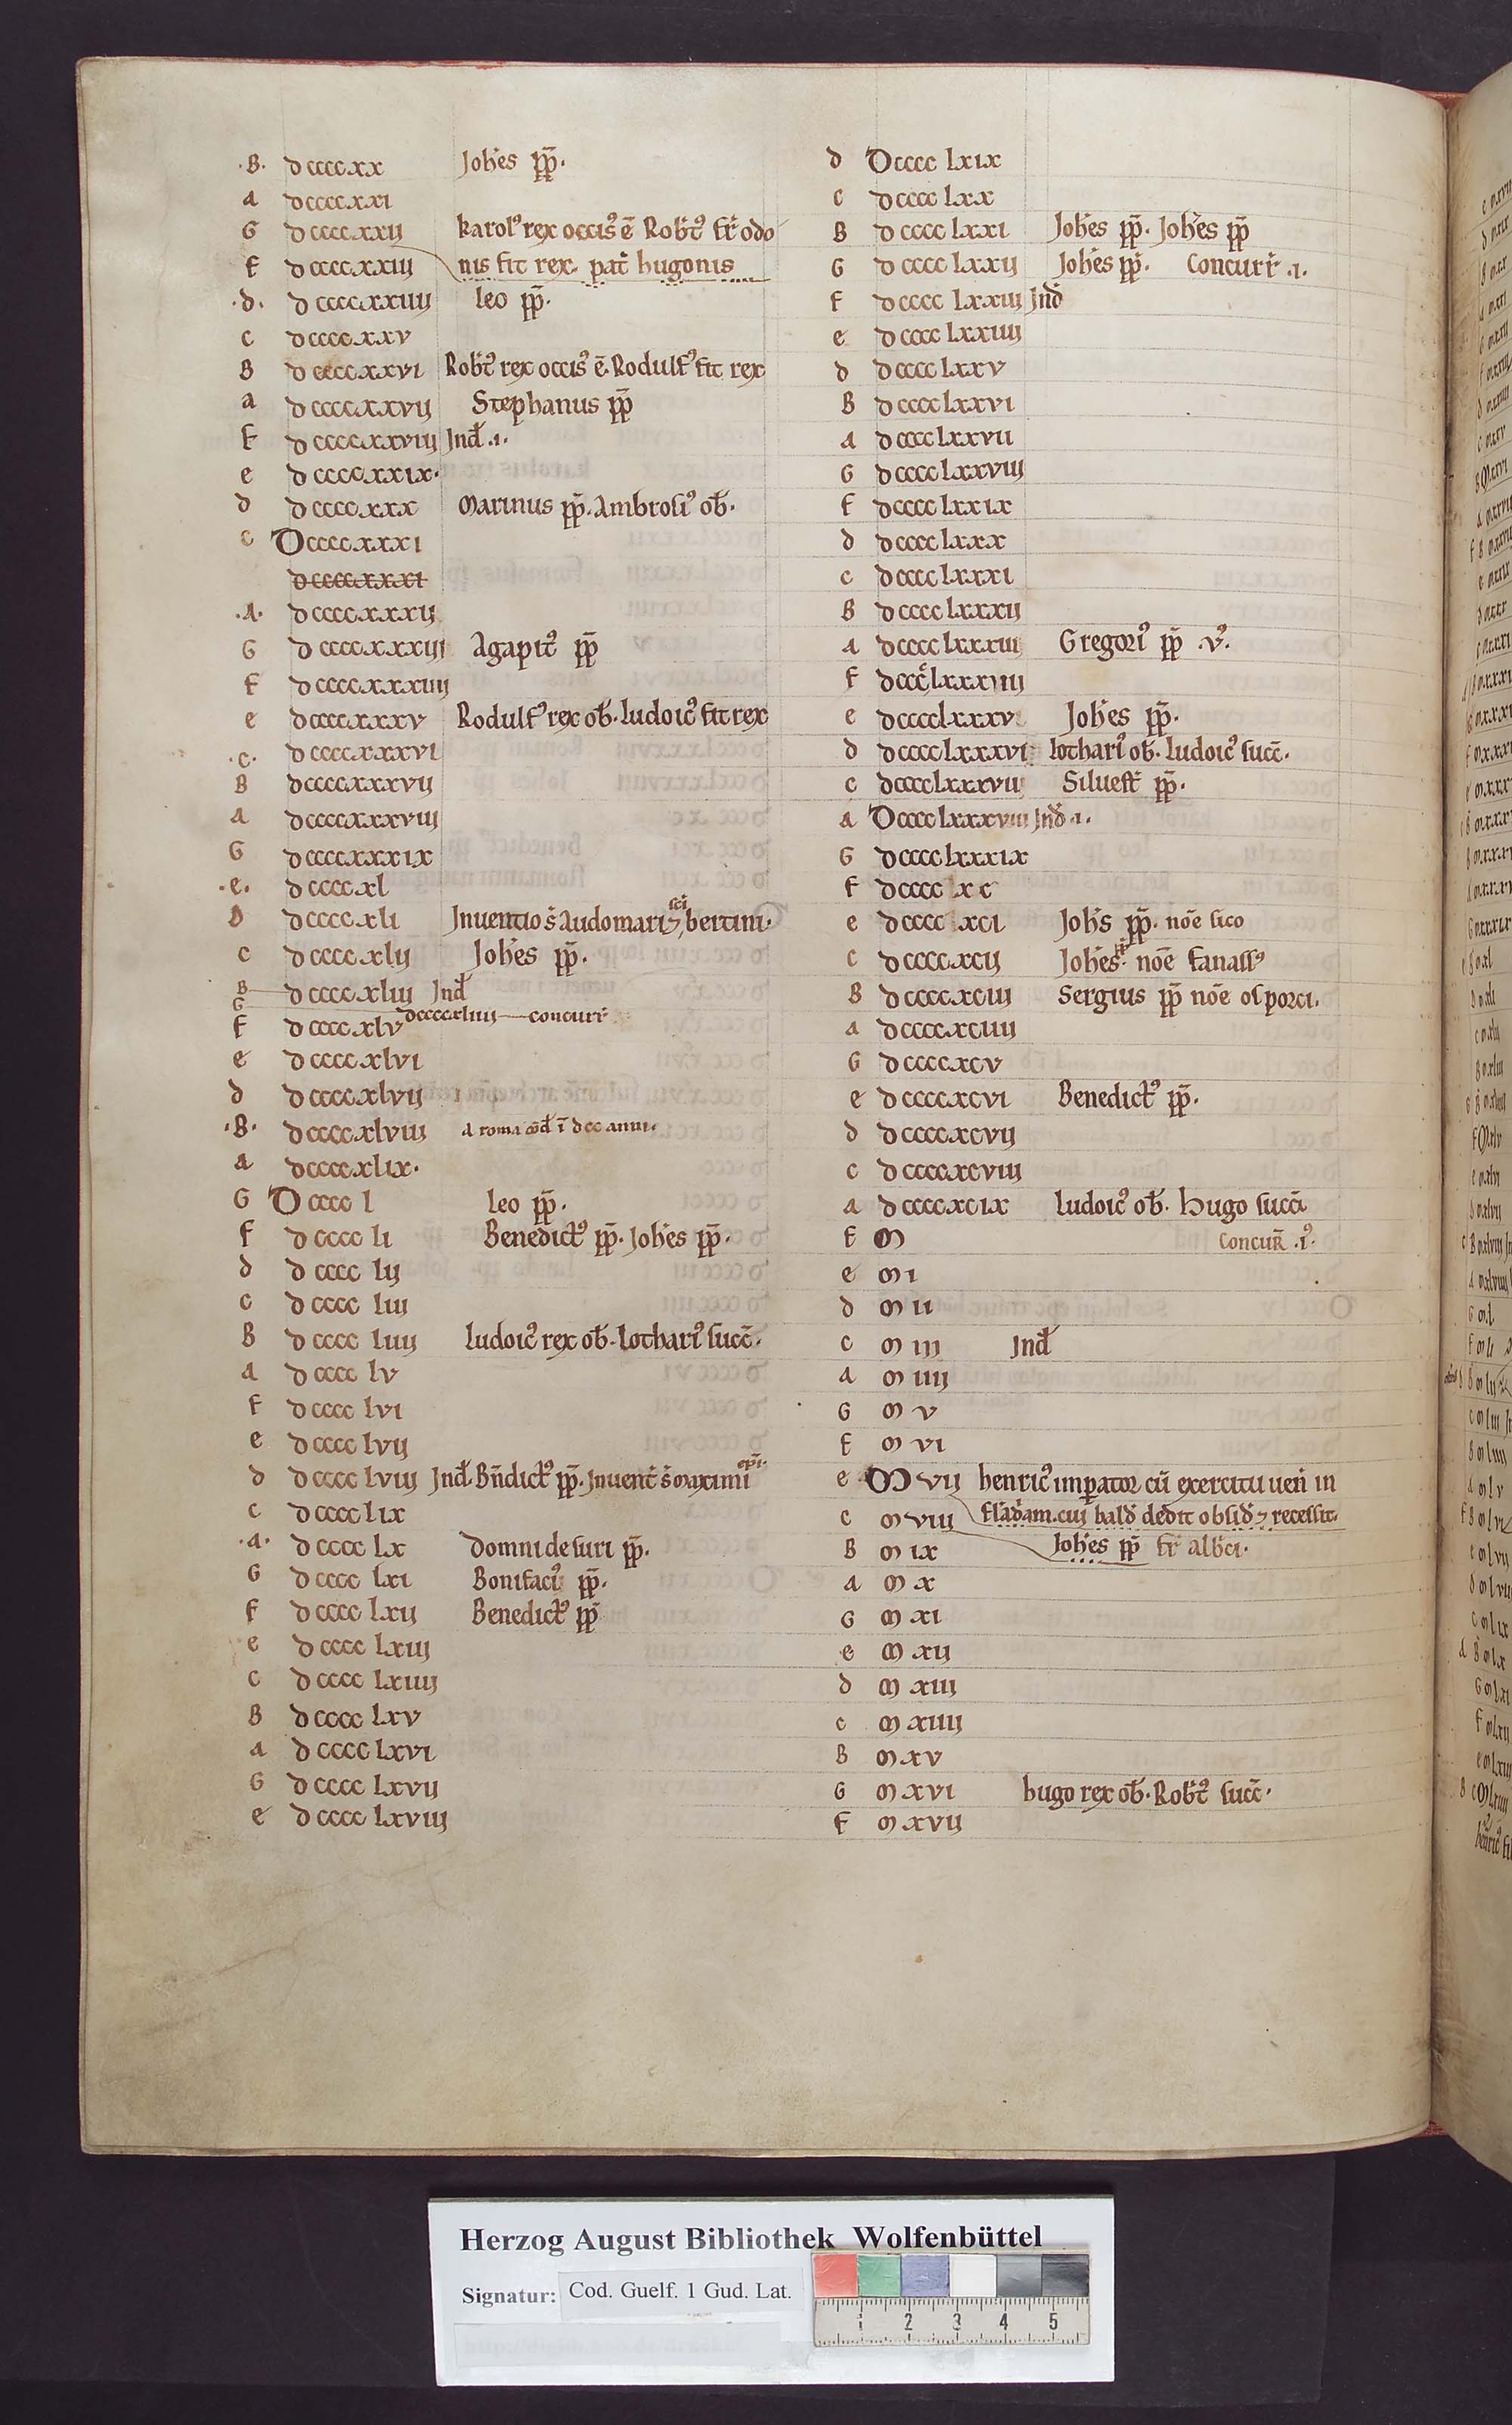 .B. dccccxx Joh'es pp̄.
a dccccxxi
G dccccxxii karol' rex occis' ē Rob't' fr̄ odo
F dccccxxiii nis fit rex. pat' hugonis
.d. dccccxxiiii Leo pp̄.
c dccccxxv
B dccccxxvi Rob't' rex occis' ē. Rodulf' fit rex
a dccccxxvii Stephanus pp̄
F dccccxxviii Ind' .1.
e dccccxxix.
d dccccxxx Marinus pp̄. Ambrosi' ob'.
c Dccccxxxi
dccccxxxi
.A. dccccxxxii
G dccccxxxiii Agapit' pp̄
F dccccxxxiiii
e dccccxxxv Rodulf' rex ob'. ludoic' fit rex
.c. dccccxxxvi
B dccccxxxvii
a dccccxxxviii
G dccccxxxix
.e. dccccxl
D dccccxli Inuentio s' Audomari ⁊ sc̄i bertini.
c dccccxlii Joh'es pp̄.
B dccccxliii Ind'
G dccccxliiii concurr̄
F dccccxlv
e dccccxlvi
d dccccxlvii
.B. dccccxlviii a roma
a dccccxlix.
G Dcccc l Leo pp̄.
F dcccc li Benedict' pp̄. Joh'es pp̄.
d dcccc lii
c dcccc liii
B dcccc liiii ludoic' rex ob'. Lothari' succ̄.
a dcccc lv
F dcccc lvi
e dcccc lvii
d dcccc lviii Ind'. Bn̄dict' pp̄. Inuent' s' maximi ep̄i.
c dcccc lix
.a. dcccc lx Domni de suri pp̄.
G dcccc lxi Bonifaci' pp̄.
F dcccc lxii Benedict' pp̄
e dcccc lxiii
c dcccc lxiiii
B dcccc lxv
a dcccc lxvi
G dcccc lxvii
e dcccc lxviii
d Dcccc lxix
c dcccc lxx
B dcccc lxxi Joh'es pp̄. Joh'es pp̄
G dcccc lxxii Joh'es pp̄. Concurr̄ .1.
F dcccc lxxiii Ind'
e dcccc lxxiiii
d dcccc lxxv
B dcccc lxxvi
a dcccc lxxvii
G dcccc lxxviii
F dcccc lxxix
d dcccc lxxx
c dcccc lxxxi
B dcccc lxxxii
a dcccc lxxxiii Gregori' pp̄ .v'.
F dcccc lxxxiiii
e dcccclxxxv Joh'es pp̄.
d dcccclxxxvi lothari' ob'. ludoic' succ̄.
c dcccclxxxvii Siluest' pp̄.
a Dcccclxxxviii Ind' .1.
G dcccclxxxix
F dcccc xc
e dcccc xci Joh's pp̄. nōe sico
c dccccxcii Joh'es pp̄. nōe fanass'
B dccccxciii Sergius pp̄ nōe os porci.
a dccccxciiii
G dccccxcv
e dccccxcvi Benedict' pp̄.
d dccccxcvii
c dccccxcviii
a dccccxcix ludoic' ob'. Hugo succ̄
F m Concur̄ .i'.
e m i
d m ii
c m iii Ind'
a m iiii
G m v
F m vi
e M vii henric' imperator cū exercitu uen' in
c m viii flad'am. cui bald' dedit obsid' ⁊ recessit.
B m ix Joh'es pp̄ fr̄ alb'ci.
a m x
G m xi
e m xii
d m xiii
c m xiiii
B m xv
G m xvi hugo rex ob'. Rob't' succ̄.
F m xvii
Herzog August Bibliothek Wolfenbüttel
Signatur: Cod. Guelf. 1 Gud. Lat.
1 2 3 4 5